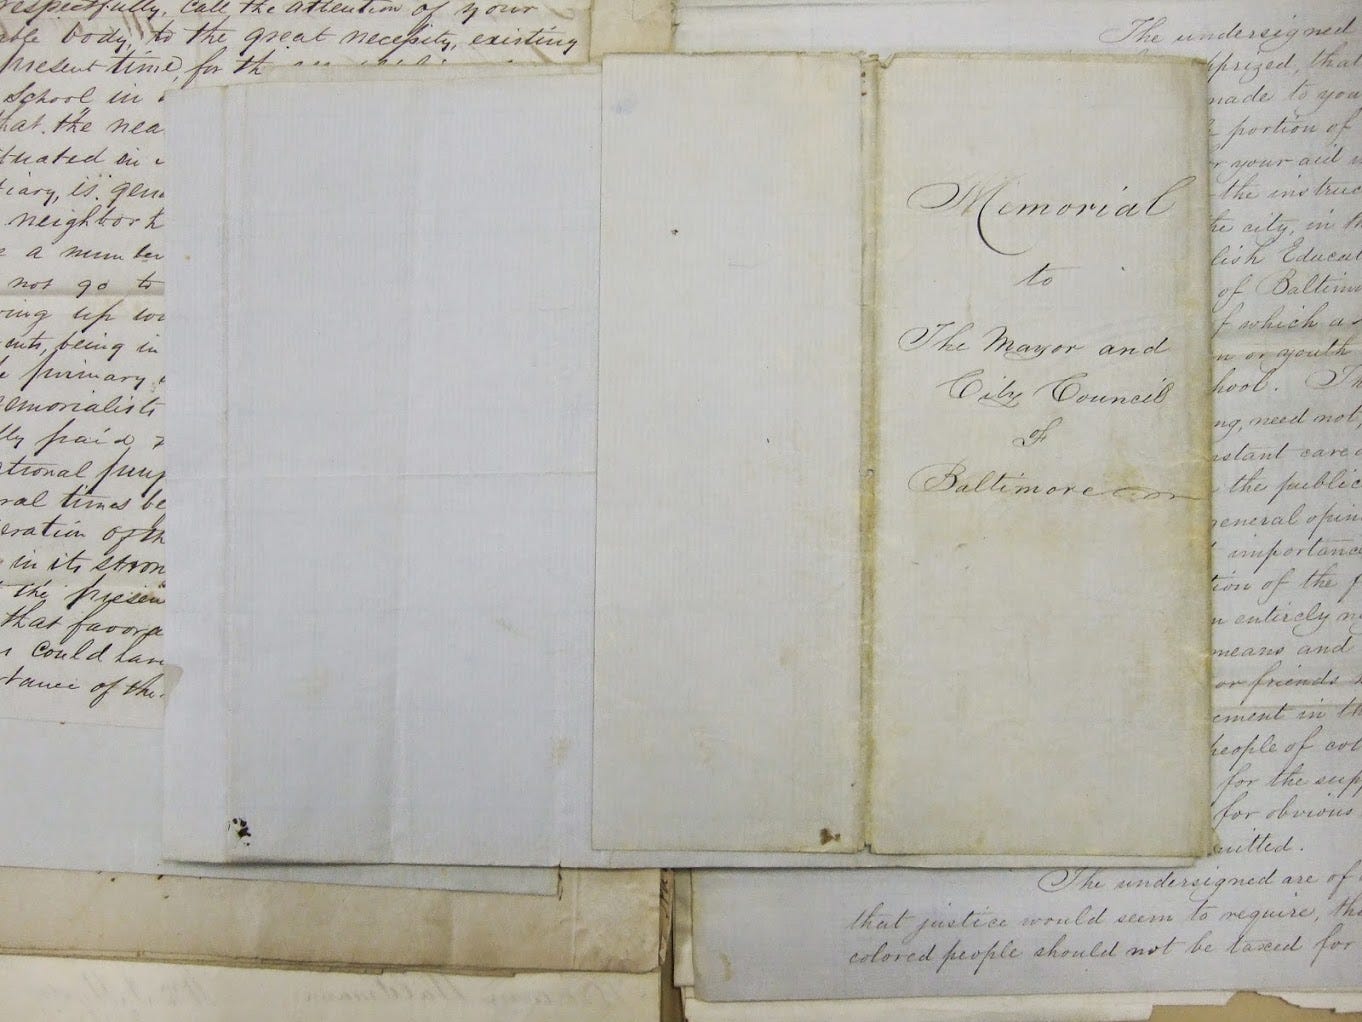 respectfully, call the attention of your
able body, to the great necessity, existing
present time, for th
school in
hat, the nea
tuated in
tiary, is gene
neighborh
a number
not go to
ing up
ents, being in
primary
emorialists
lly paid
ational purp
ral times be
eration of th
in its stron
the presen
that favora
could have
tance of the
Memorial
to
The Mayor and
City Council
of
Baltimore
The undersigned
pprized, that
made to you
portion of
r your aid
the instruc
he city, in th
lish Educat
of Baltimo
f which a
n or youth
hool. Th
ng, need not,
nstant care
the public
general opin
importance
tion of the f
n entirely
means and
or friends
ement in th
people of col
for the supp
for obvious
mitted.
The undersigned are of
that justice would seem to require, tha
colored people should not be taxed for